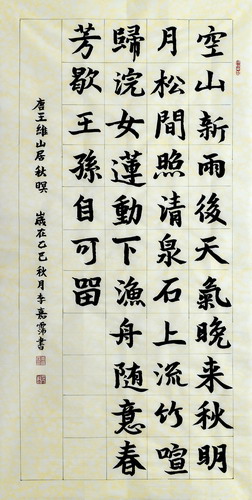 空山新雨後天氣晚来秋明
月松間照清泉石上流竹喧
歸浣女蓮動下漁舟随意春
芳歇王孫自可留
唐王維山居秋暝 歲在乙巳秋月李嘉霈書